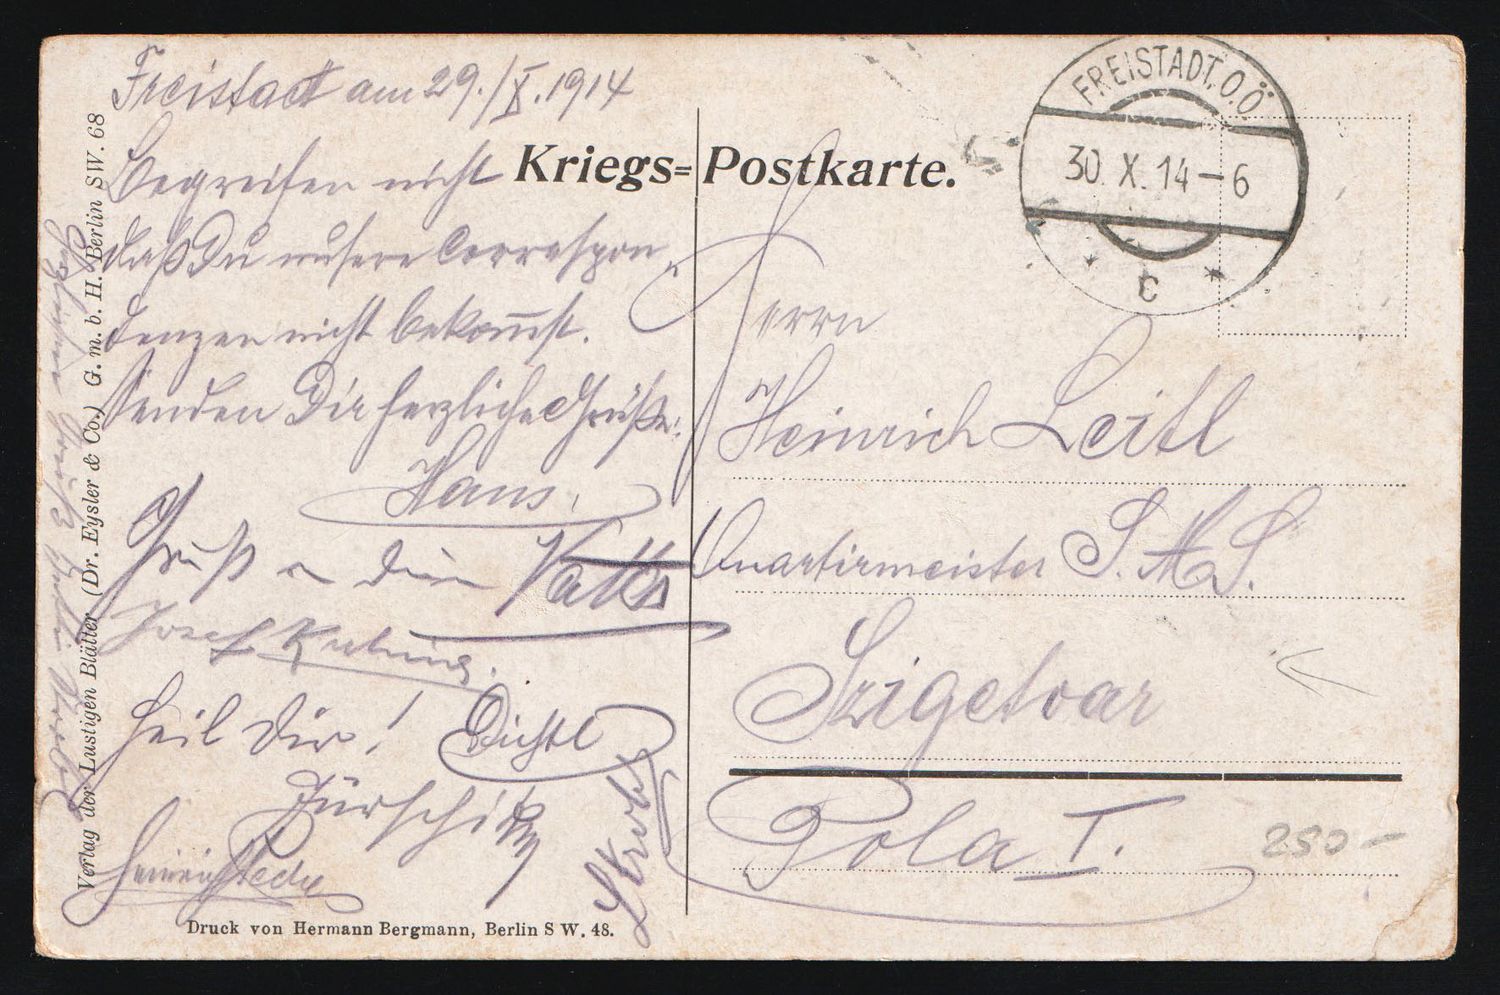 Freistadt am 29./X. 1914
Begreifen nicht
daß Du unsere Correspon-
denzen nicht bekommst.
Senden Dir herzliche Grüße.
Hans.
Gruß
Josef
Heil Dir! Dichtl
Heinrich
Kriegs=Postkarte.
FREISTADT. O.Ö.
30. X. 14-6
* C *
Herrn
Heinrich Leitl
Quartirmeister S.M.S.
Szigetvar
Pola I.
250-
Verlag der Lustigen Blätter (Dr. Eysler & Co.) G. m. b. H. Berlin SW. 68
Druck von Hermann Bergmann, Berlin SW. 48.